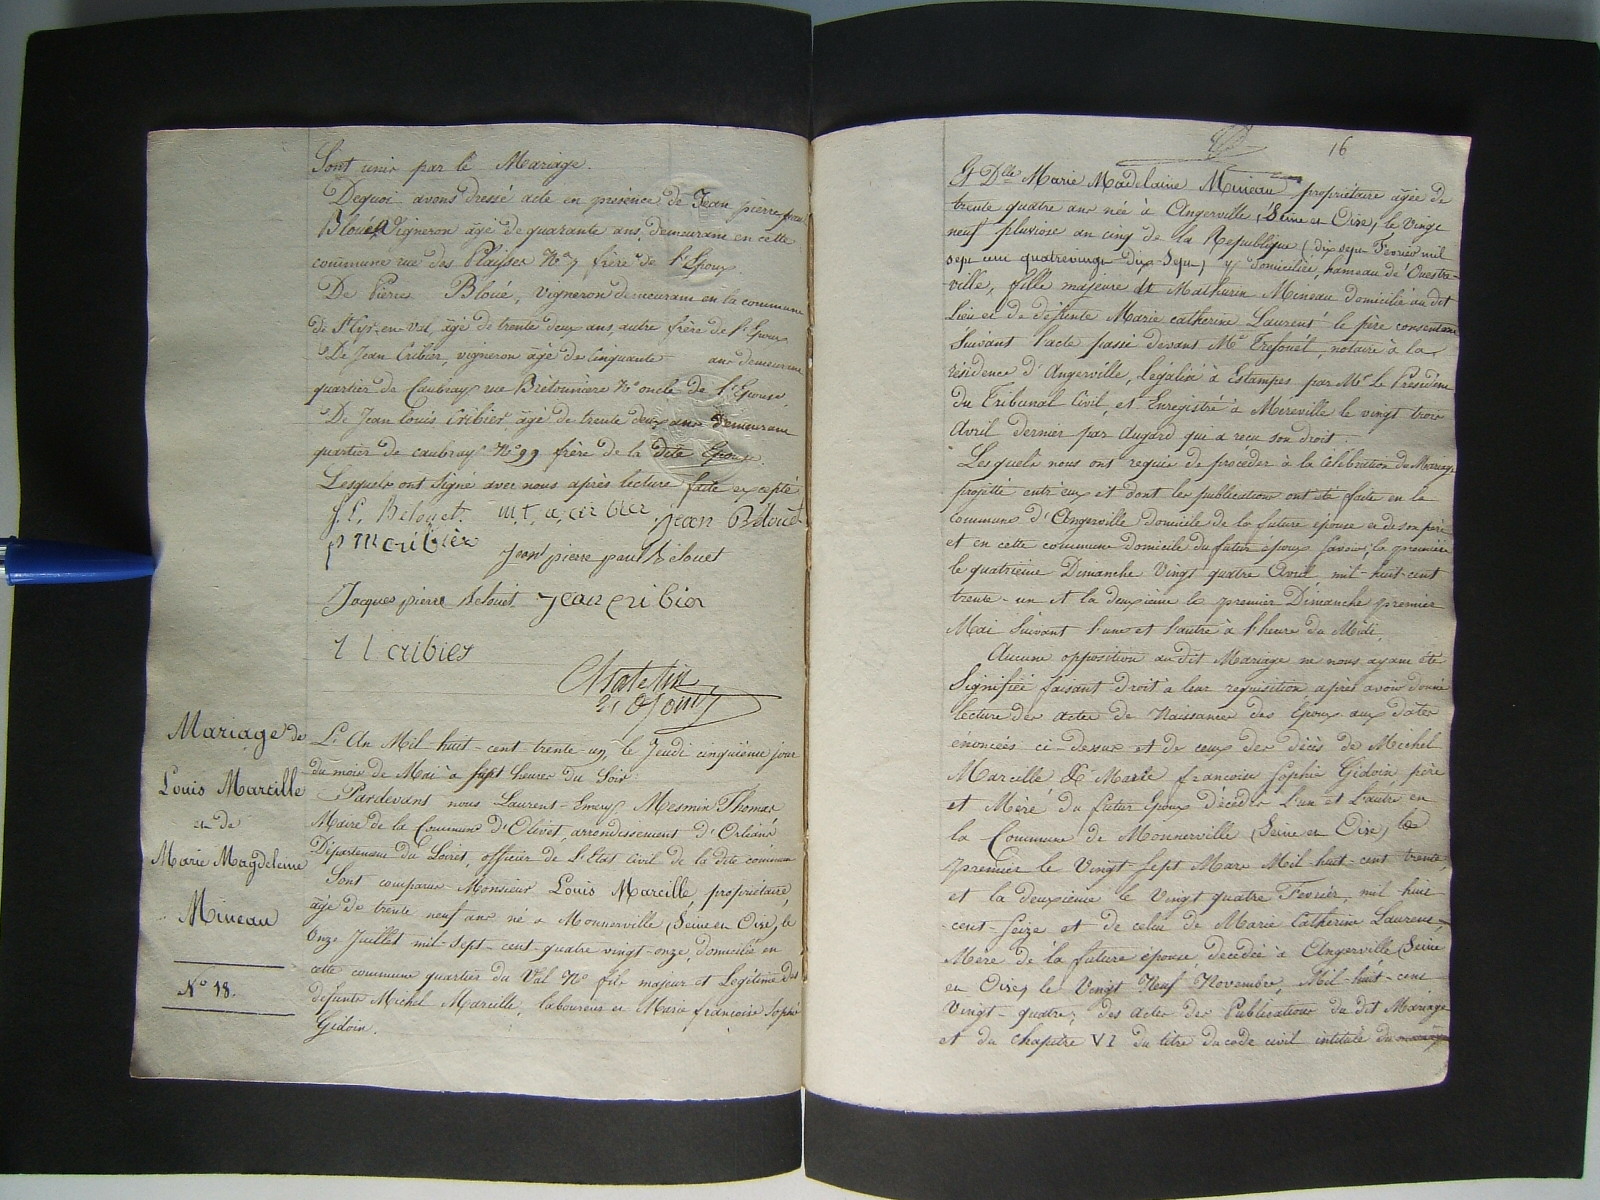 Sont unis par le Mariage.
Dequoi avons dressé acte en présence de Jean pierre paul
Bloué Vigneron âgé de quarante ans, demeurant en cette
commune rue des Plaisses N° 7 frère de l'Epoux.
De Pierre Bloué, Vigneron demeurant en la commune
de St Cyr-en-Val, âgé de trente deux ans, autre frère de l'Epoux
De Jean Cribier, vigneron âgé de Cinquante ans demeurant
quartier de Caubray rue Bretonnière N° oncle de l'Epouse.
De Jean Louis Cribier âgé de trente deux ans demeurant
quartier de caubray N° 99 frère de la dite Epouse.
Lesquels ont signé avec nous après lecture faite excepté
J. P. Belouet. m. t. a. cribier. jean Belouet
p m cribier
jean pierre paul Belouet
Jacques pierre Belouet jean cribier
l l cribier
Mariage de
Louis Marcille
et de
Marie Magdeleine
Mineau
N° 18.
L'An Mil huit-cent trente-un, le Jeudi cinquième jour
du mois de Mai à sept heures du Soir
Pardevant nous Laurent-Emery Mesmin Thomas
Maire de la Commune d'Olivet, arrondissement d'Orléans
Département du Loiret, officier de l'Etat Civil de la dite commune
Sont comparus Monsieur Louis Marcille, propriétaire,
âgé de trente neuf ans né à Monnerville (Seine en Oise) le
Onze Juillet mil-sept-cent-quatre vingt-onze, domicilié en
cette commune quartier du Val N° fils majeur et Légitime des
défunts Michel Marcille, laboureur et Marie francoise Sophie
Gidoin.
16
Et Dlle Marie Madelaine Mineau propriétaire âgée de
trente quatre ans née à Angerville (Seine et Oise) le Vingt
neuf pluviose an cinq de la République (dix sept Fevrier mil
sept cent quatrevingt Dix-Sept) y domiciliée, hameau de Ouestre-
ville, fille majeure de Mathurin Mineau domicilié au dit
Lieu et de défunte Marie catherine Laurent le père consentant
Suivant l'acte passé devant Me Trefouël, notaire à la
résidence d'Angerville, légalisé à Estampes par Mr Le Président
du Tribunal Civil, et Enregistré à Mereville le vingt trois
Avril dernier par Augard qui a recu son droit.
Lesquels nous ont requis de procéder à la célébration du Mariage
projetté entr'eux et dont les publications ont été faite en la
commune d'Angerville domicile de la future épouse et de son père
et en cette commune domicile du futur époux Savoir, la première
le quatrième Dimanche Vingt quatre Avril mil-huit-cent
trente-un et la deuxième le premier Dimanche premier
Mai Suivant l'une et l'autre à l'heure du Midi.
Aucune opposition au dit Mariage ne nous ayant été
Signifiée faisant droit à leur requisition après avoir donné
lecture des actes de Naissances des Epoux aux dates
énoncées ci-dessus et de ceux des décès de Michel
Marcille & Marie francoise Sophie Gidoin père
et Mère du futur Epoux décédés l'un et l'autre en
la Commune de Monnerville (Seine en Oise) le
premier le Vingt Sept Mars Mil-huit-cent trente,
et la deuxième le Vingt quatre Fevrier, mil huit
-cent-Seize et de celui de Marie Catherine Laurent,
Mère de la future épouse, décédée à Angerville (Seine
en Oise) le Vingt Neuf Novembre, Mil-huit-cent
Vingt-quatre; des actes des Publications du dit Mariage
et du chapitre VI du titre du code civil intitulé du mariage